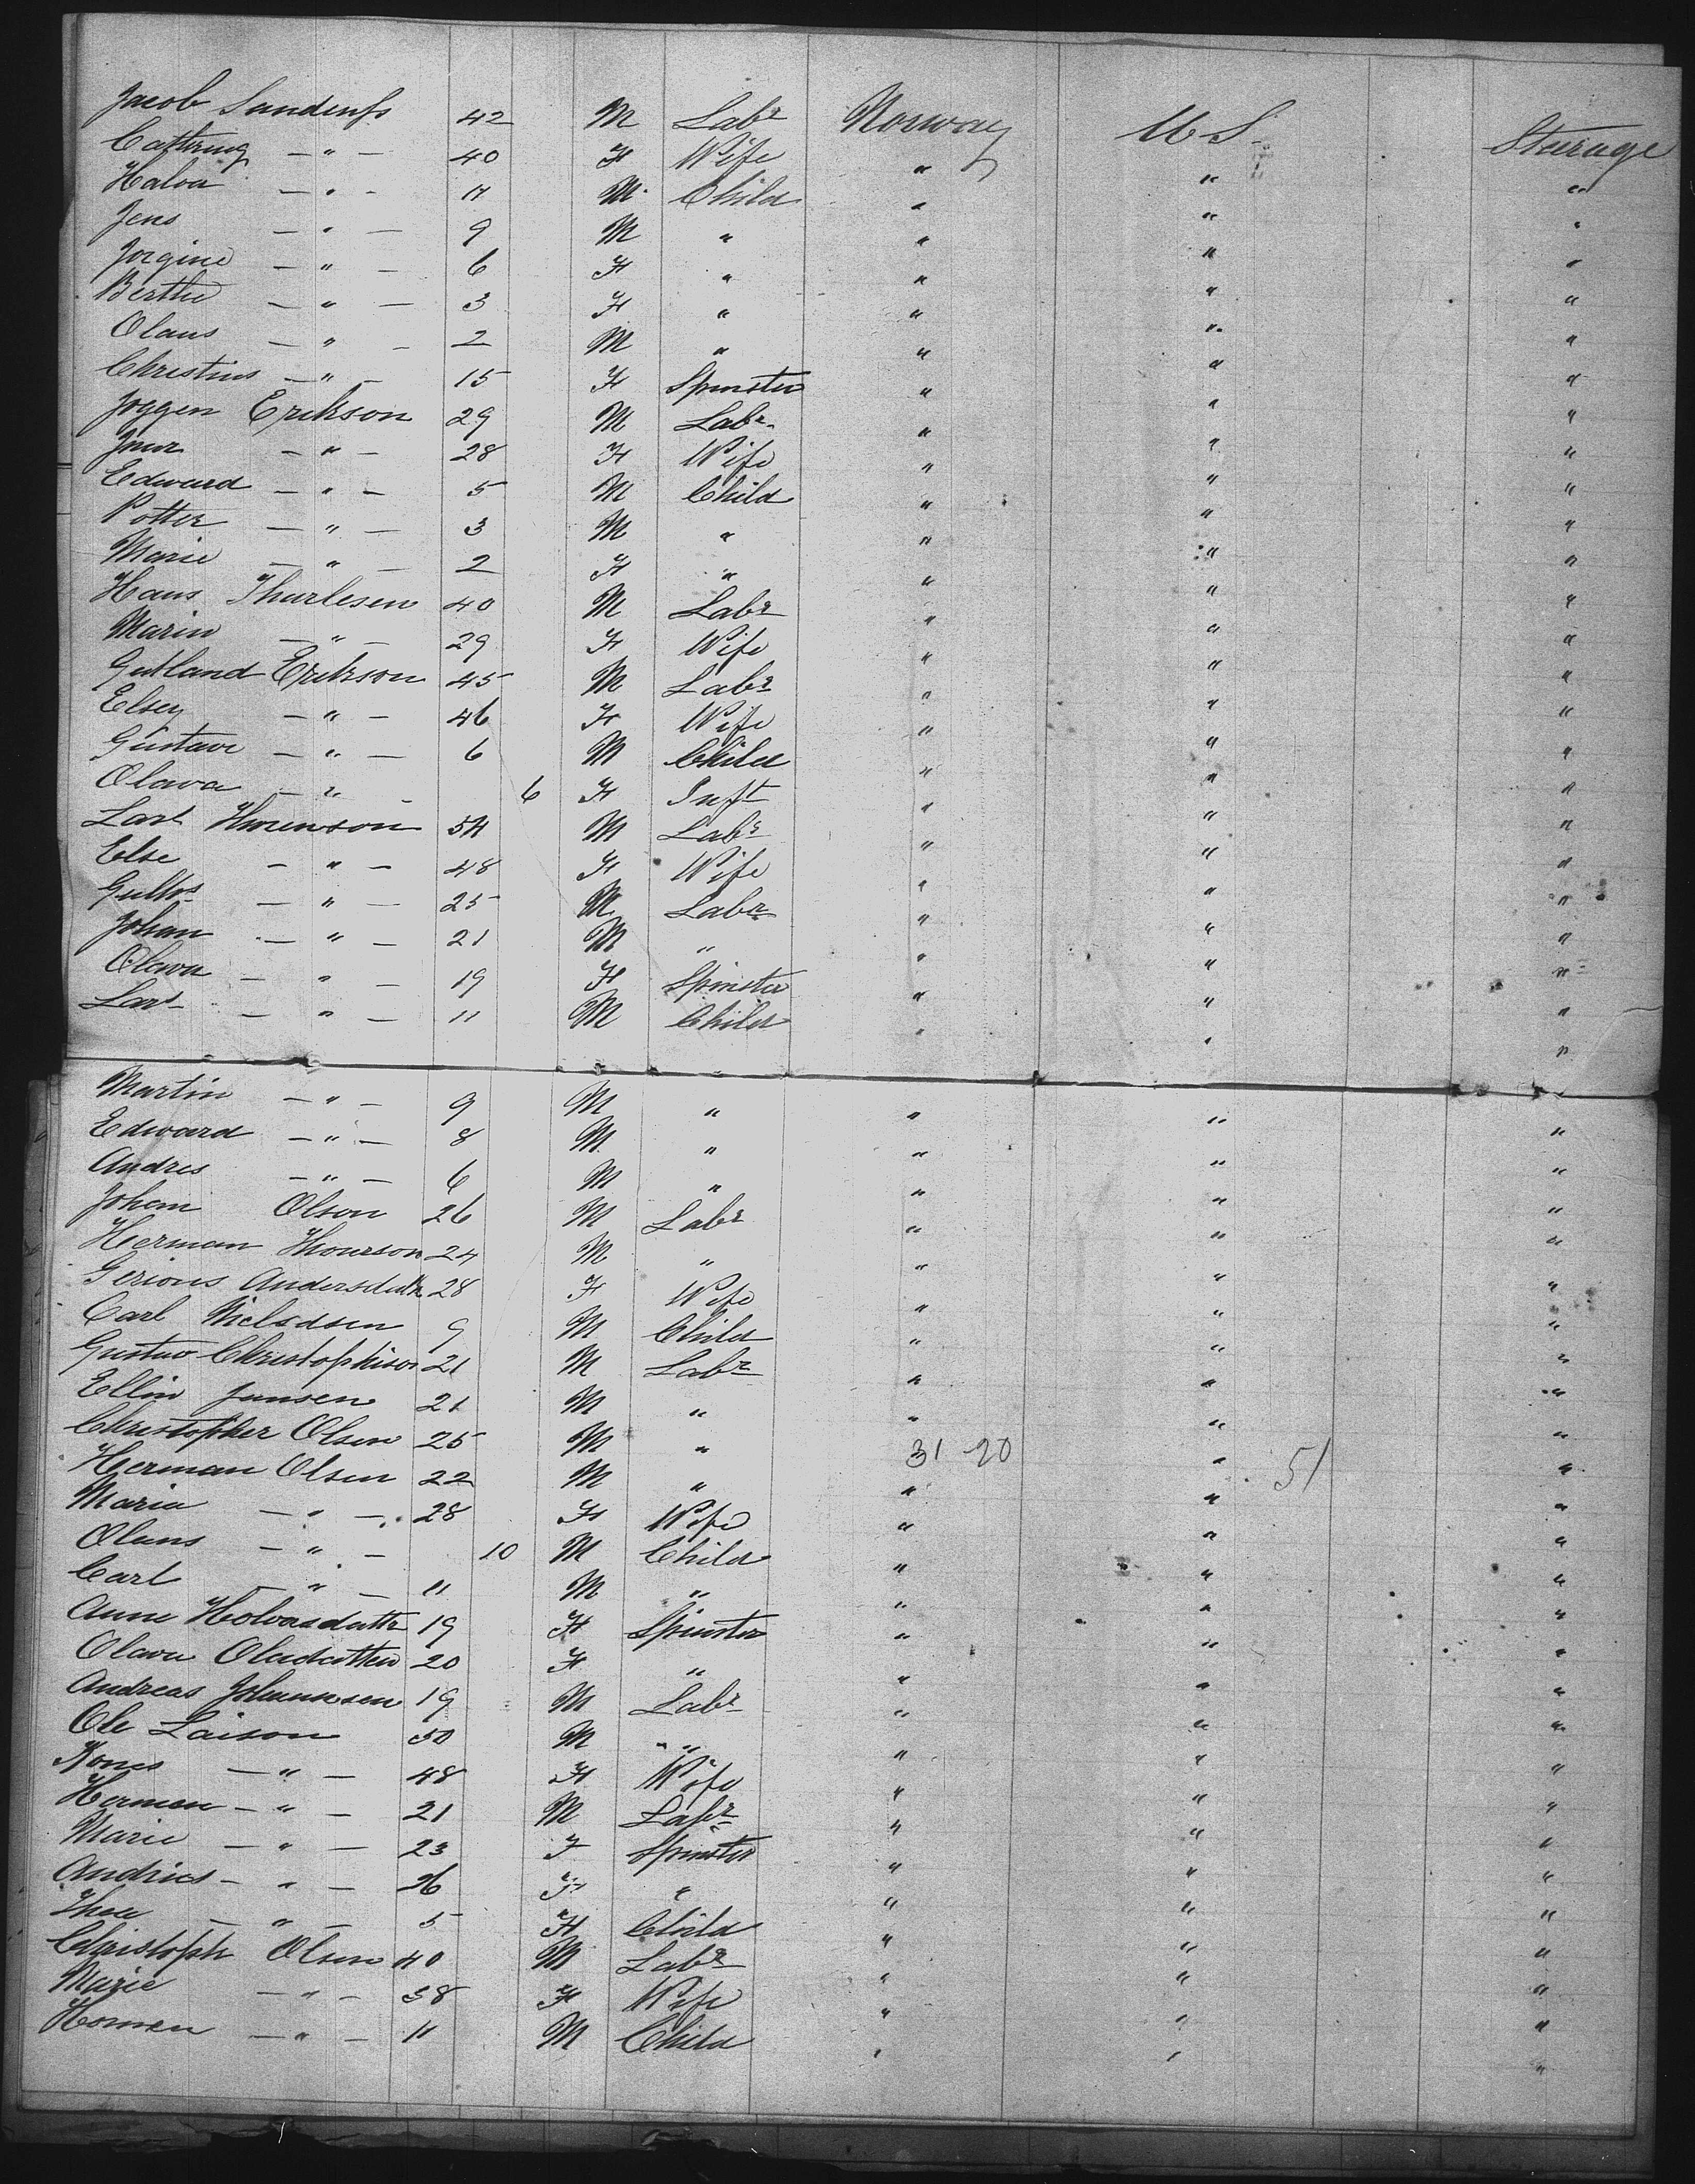 Jacob Sandenfs 42 M Labr Norway U S. Steerage
Cathring — " — 40 F Wife " " "
Halva — " — 11 M Child " " "
Jens — " — 9 M " " " "
Jorgine — " — 6 F " " " "
Berthe — " — 3 F " " " "
Olaus — " — 2 M " " " "
Christins — " — 15 F Spinster " " "
Joggen Erikson 29 M Labr " " "
— " — 28 F Wife " " "
Edward — " — 5 M Child " " "
Potter — " — 3 M " " " "
Marie — " — 2 F " " " "
Hans Thurlesen 40 M Labr " " "
Marin — " — 29 F Wife " " "
Gutland Erikson 45 M Labr " " "
Elsey — " — 46 F Wife " " "
Gustave — " — 6 M Child " " "
Olava — " — 6 F Inft " " "
Lars 54 M Labr " " "
Else — " — 48 F Wife " " "
— " — 25 M Labr " " "
Johan — " — 21 M " " " "
Olava — " — 19 F Spinster " " "
Lars — " — 11 M Child " " "
Martin — " — 9 M " " " "
Edward — " — 8 M " " " "
Andres — " — 6 M " " " "
Johan Olson 26 M Labr " " "
Herman Thourson 24 M " " " "
Gerions Andersdutte 28 F Wife " " "
Carl Nielsdsen 9 M Child " " "
Gustav Christophison 21 M Labr " " "
Ellin Jansen 21 M " " " "
Christopher Olsen 25 M " 31 20 " "
Herman Olsen 22 M " " " 51 "
Maria — " — 28 F Wife " " "
Olaus — " — 10 M Child " " "
Carl — " — 11 M " " " "
Anne Holvorsdattr 19 F Spinster " " "
Olava Olesdatten 20 F " " " "
Andreas Johannsen 19 M Labr " " "
Ole Laison 50 M " " " "
— " — 48 F Wife " " "
Herman — " — 21 M Labr " " "
Marie — " — 23 F Spinster " " "
Andrics — " — 26 F " " " "
Thea — " — 5 F Child " " "
Christoph Olsen 40 M Labr " " "
Marie — " — 38 F Wife " " "
Homen — " — 11 M Child " " "